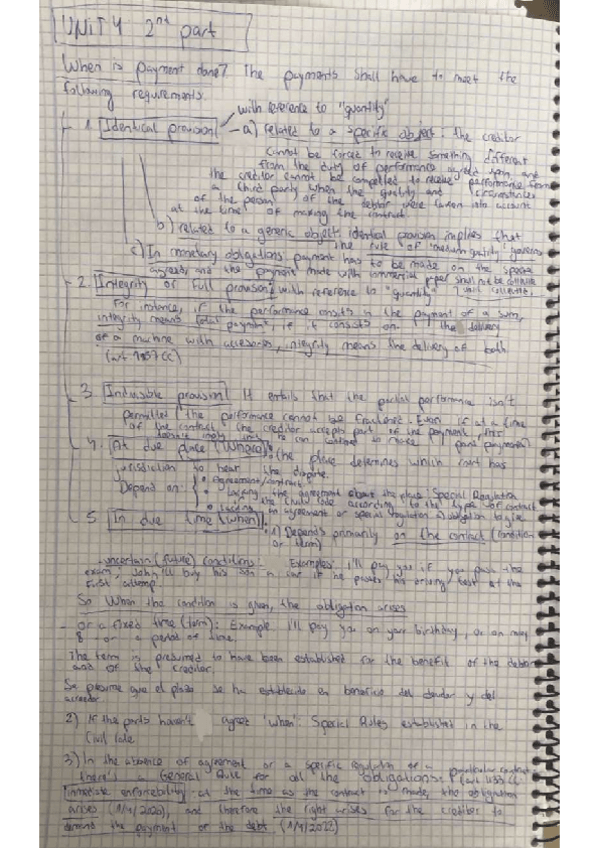 UNIT 4 2nd part
When is payment done? The payments shall have to meet the
following requirements.
with reference to "quantity"
1. Identical provision – a) related to a specific object: the creditor
cannot be forced to receive something different
from the duty of performance agreed upon, and
the creditor cannot be compelled to receive performance from
a third party when the quality and circumstances
of the person of the debtor were taken into account
at the time of making the contract.
b) related to a generic object: identical provision implies that
the rule of "medium quality" governs
c) In monetary obligations: payment has to be made on the specie
agreed, and the payment made with commercial paper shall not be
until collected.
2. Integrity or Full provision: with reference to "quantity"
For instance, if the performance consists in the payment of a sum,
integrity means total payment, if it consists on the delivery
of a machine with accesories, integrity means the delivery of both
(art 1157 CC)
3. Indivisible provision: It entails that the partial performance isn't
permitted, the performance cannot be fractioned. Even if at a time
of the contract, the creditor accepts part of the payment, this
doesn't imply
4. At due place (where): the place determines which court has
jurisdiction to hear the dispute.
Depend on: • Agreement/contract
• Lacking the agreement about the place: Special Regulation
the Civil Code according to the type of contract
• Lacking an agreement or special regulation
5. In due time (when): 1) Depends primarily on the contract (condition
or term)
- uncertain (future) conditions: Examples: I'll pay you if you pass the
exam, John'll buy his son a car if he passes his driving test at the
first attempt.
So when the condition is given, the obligation arises
- or a fixed time (term): Example I'll pay you on your birthday, or on may
8 or a period of time.
The term is presumed to have been established for the benefit of the debtor
and of the creditor.
Se presume que el plazo se ha establecido en beneficio del deudor y del
acreedor.
2) If the parts haven't agree "when": Special Rules established in the
Civil Code
3) In the absence of agreement or a specific regulation of a particular contract
there's a General Rule for all the obligations:
Inmediate enforceability: at the time as the contract is made, the obligation
arises (1/4/2020), and therefore the right arises for the creditor to
demand the payment of the debt (1/4/2022)